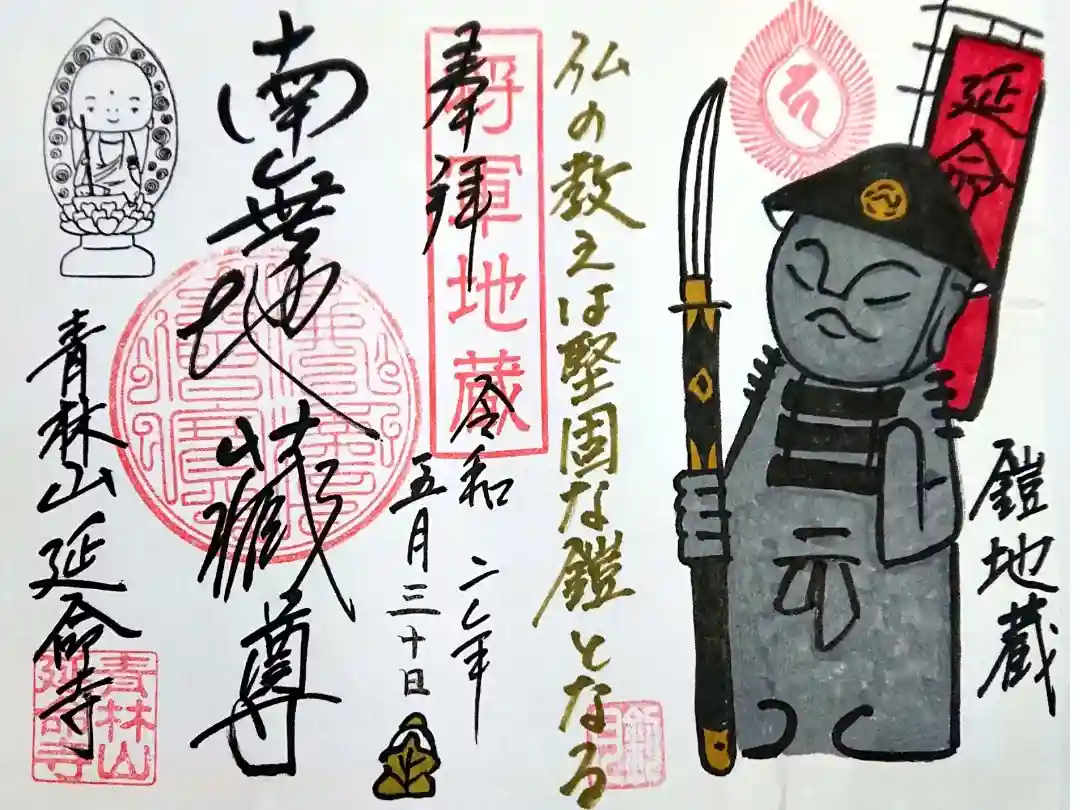 延命
鎧地蔵
仏の教えは堅固な鎧となる
将軍地蔵
奉拝
令和元年
五月三十日
南無地蔵尊
青林山延命寺
青林山
延命寺